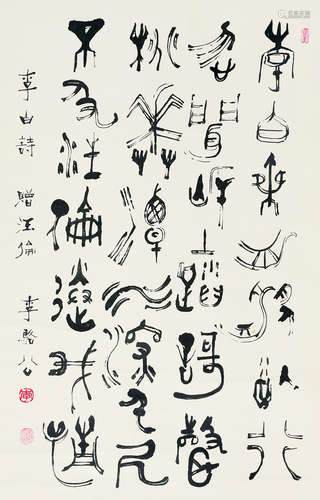 李白乘舟將欲行
忽聞岸上踏歌聲
桃花潭水深千尺
不及汪倫送我情
李白詩 贈汪倫 李駱公